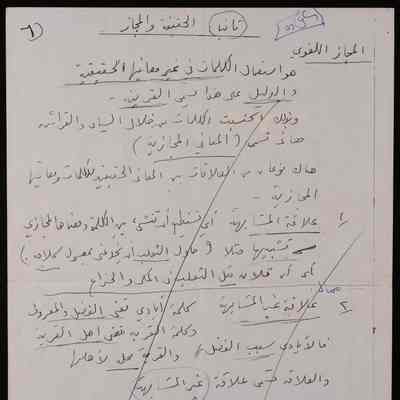 ثانيا الحقيقة والمجاز
المجاز اللغوي
هو استعمال الكلمات في غير معانيها الحقيقية
والدليل على هذا يسمى القرينة -
وبذلك اكتسبت الكلمات من خلال السياق والقرائن
معاني تسمى (المعاني المجازية)
هناك نوعان من العلاقات بين المعاني الحقيقية للكلمات ومعانيها
المجازية -
١ علاقة المشابهة أي نستطيع أن بين الكلمة ومعناها المجازي
تشبيها مثلا (حاول الثعلب أن يخدعني بمعسول كلامه)
أي أن فلان مثل الثعلب في المكر والخداع
٢ علاقة غير المشابهة كلمة أيادي تعني الفضل والمعروف
وكلمة القرية تعني أهل القرية
فالأيادي سبب الفضل والقرية محل لأهلها
والعلاقة تسمى علاقة (غير المشابهة)